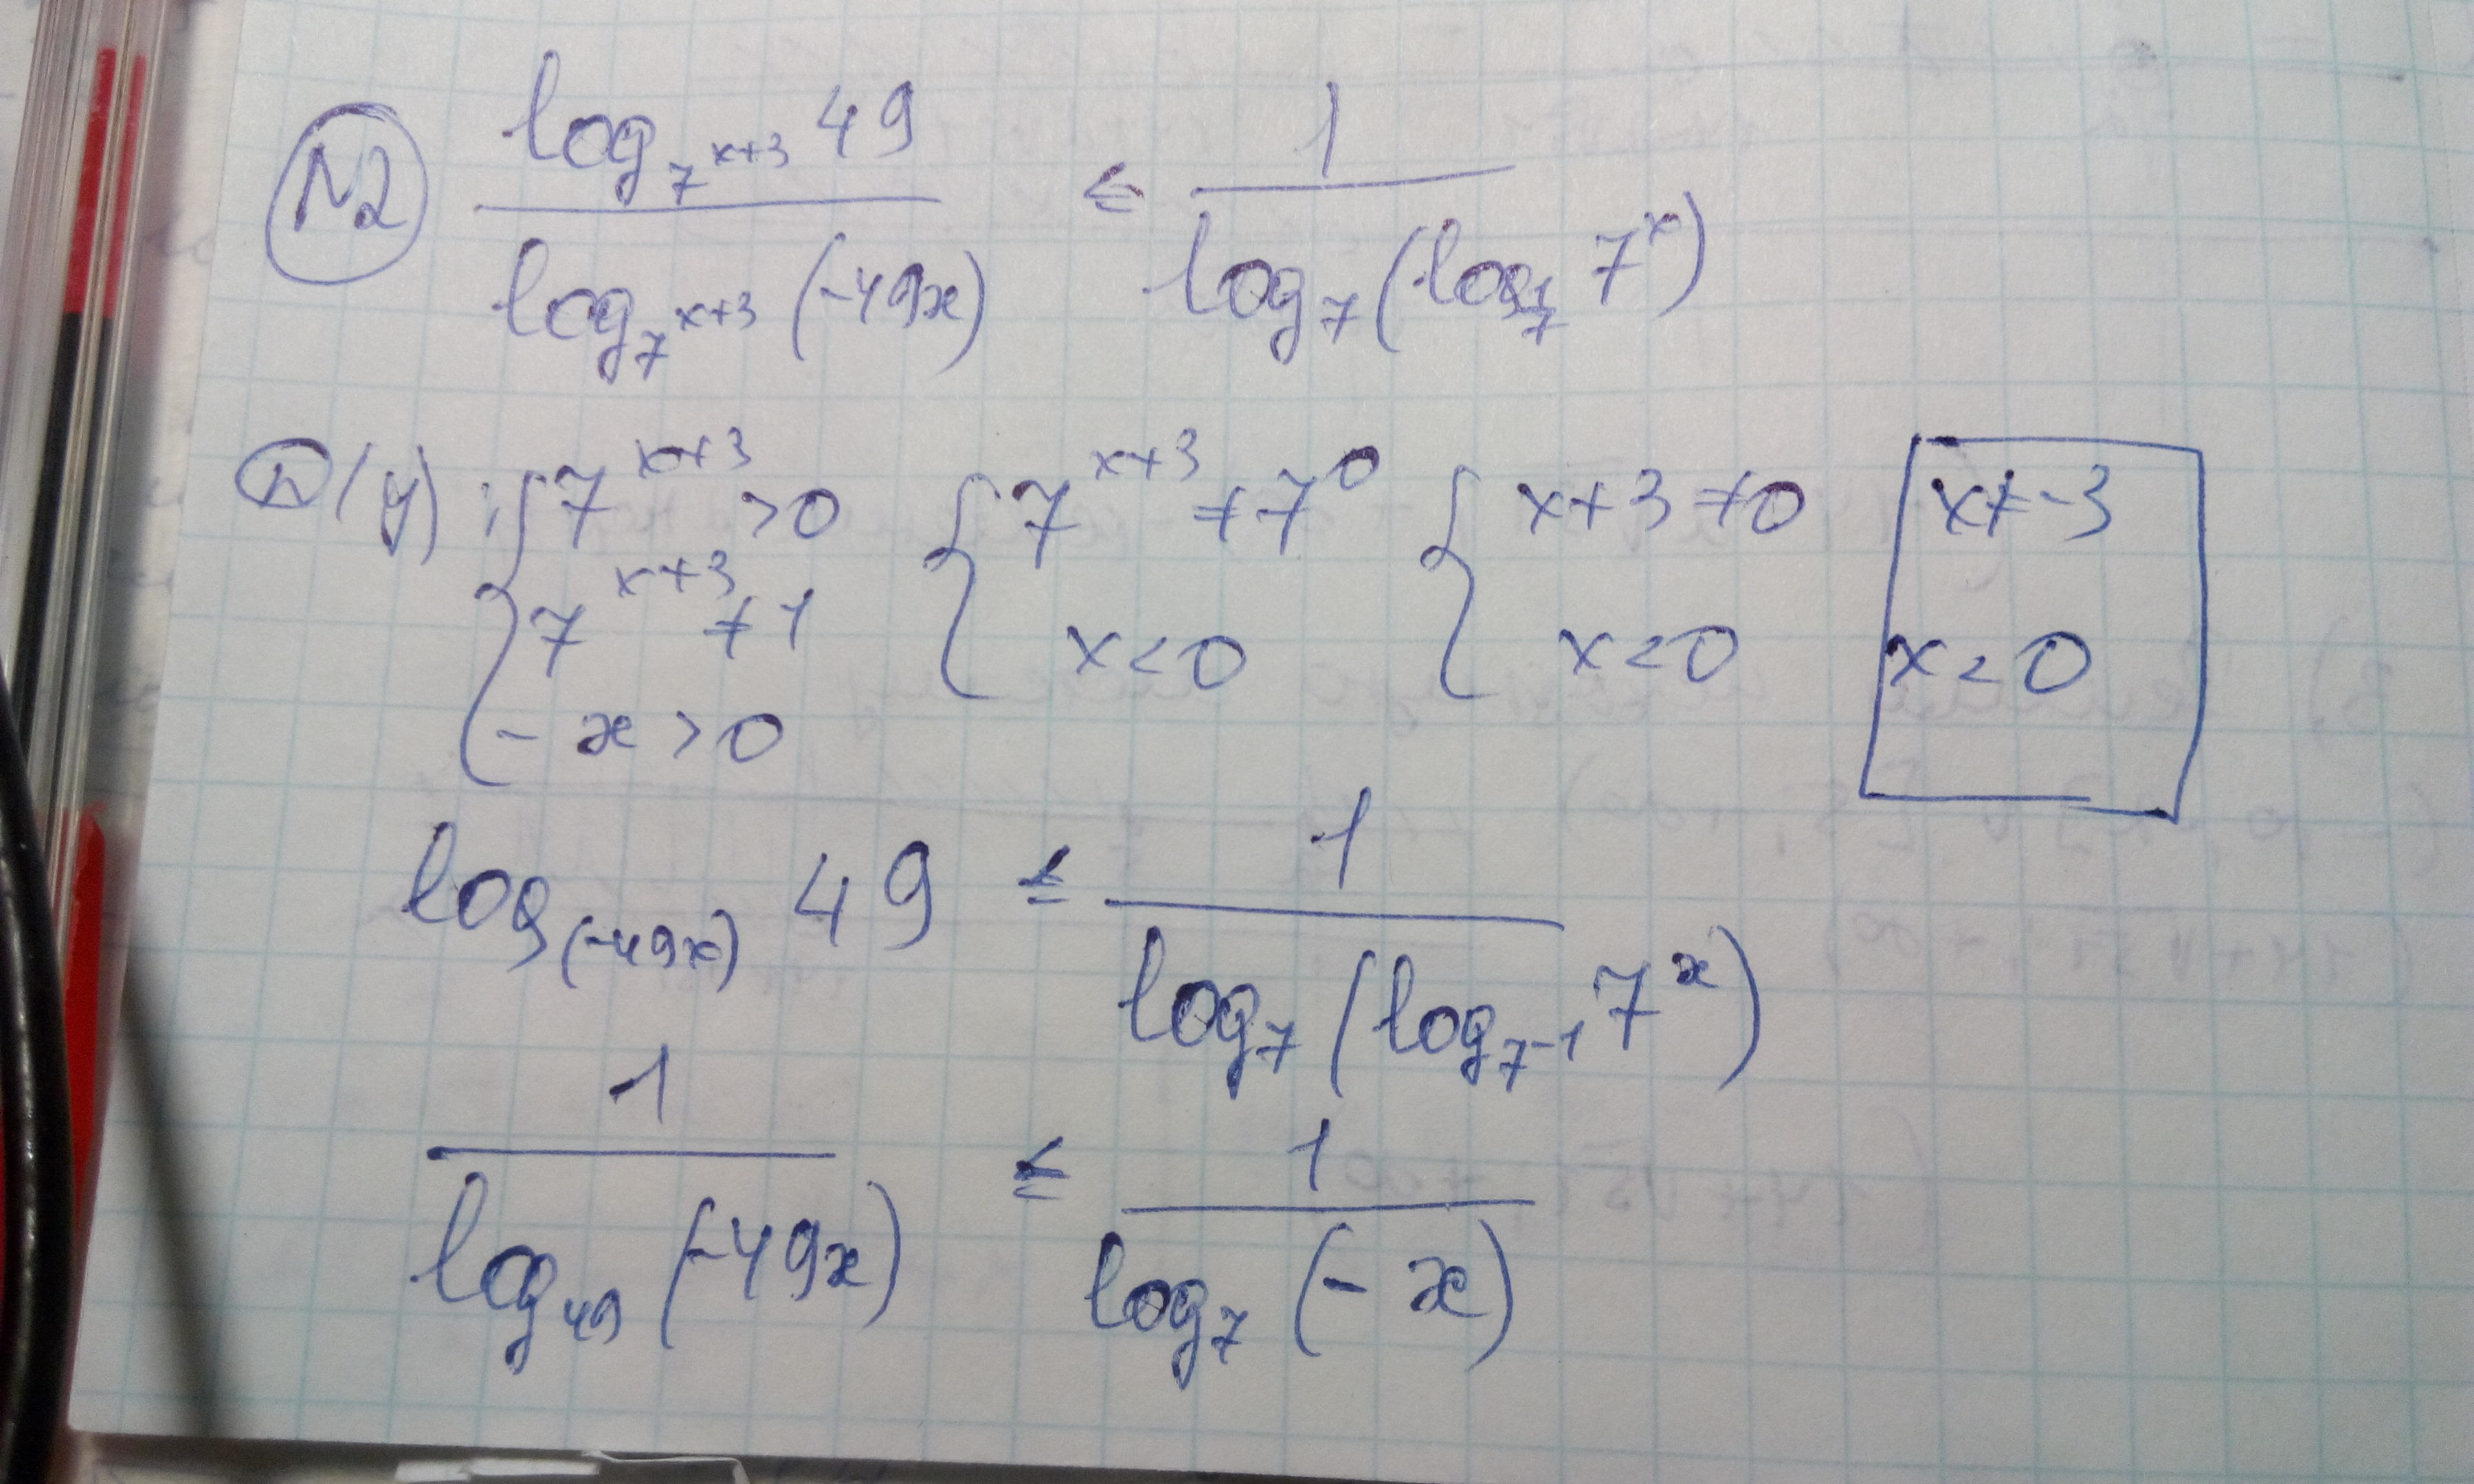 N2 log_{7^{x+3}} 49 / log_{7^{x+3}} (-49x) ≤ 1 / log_7 (log_{1/7} 7^x)
D(y): { 7^{x+3} > 0 { 7^{x+3} ≠ 7^0 { x+3 ≠ 0 x ≠ -3
7^{x+3} ≠ 1 x < 0 x < 0 x < 0
-x > 0
log_{(-49x)} 49 ≤ 1 / log_7 (log_{7^{-1}} 7^x)
1 / log_{49} (-49x) ≤ 1 / log_7 (-x)